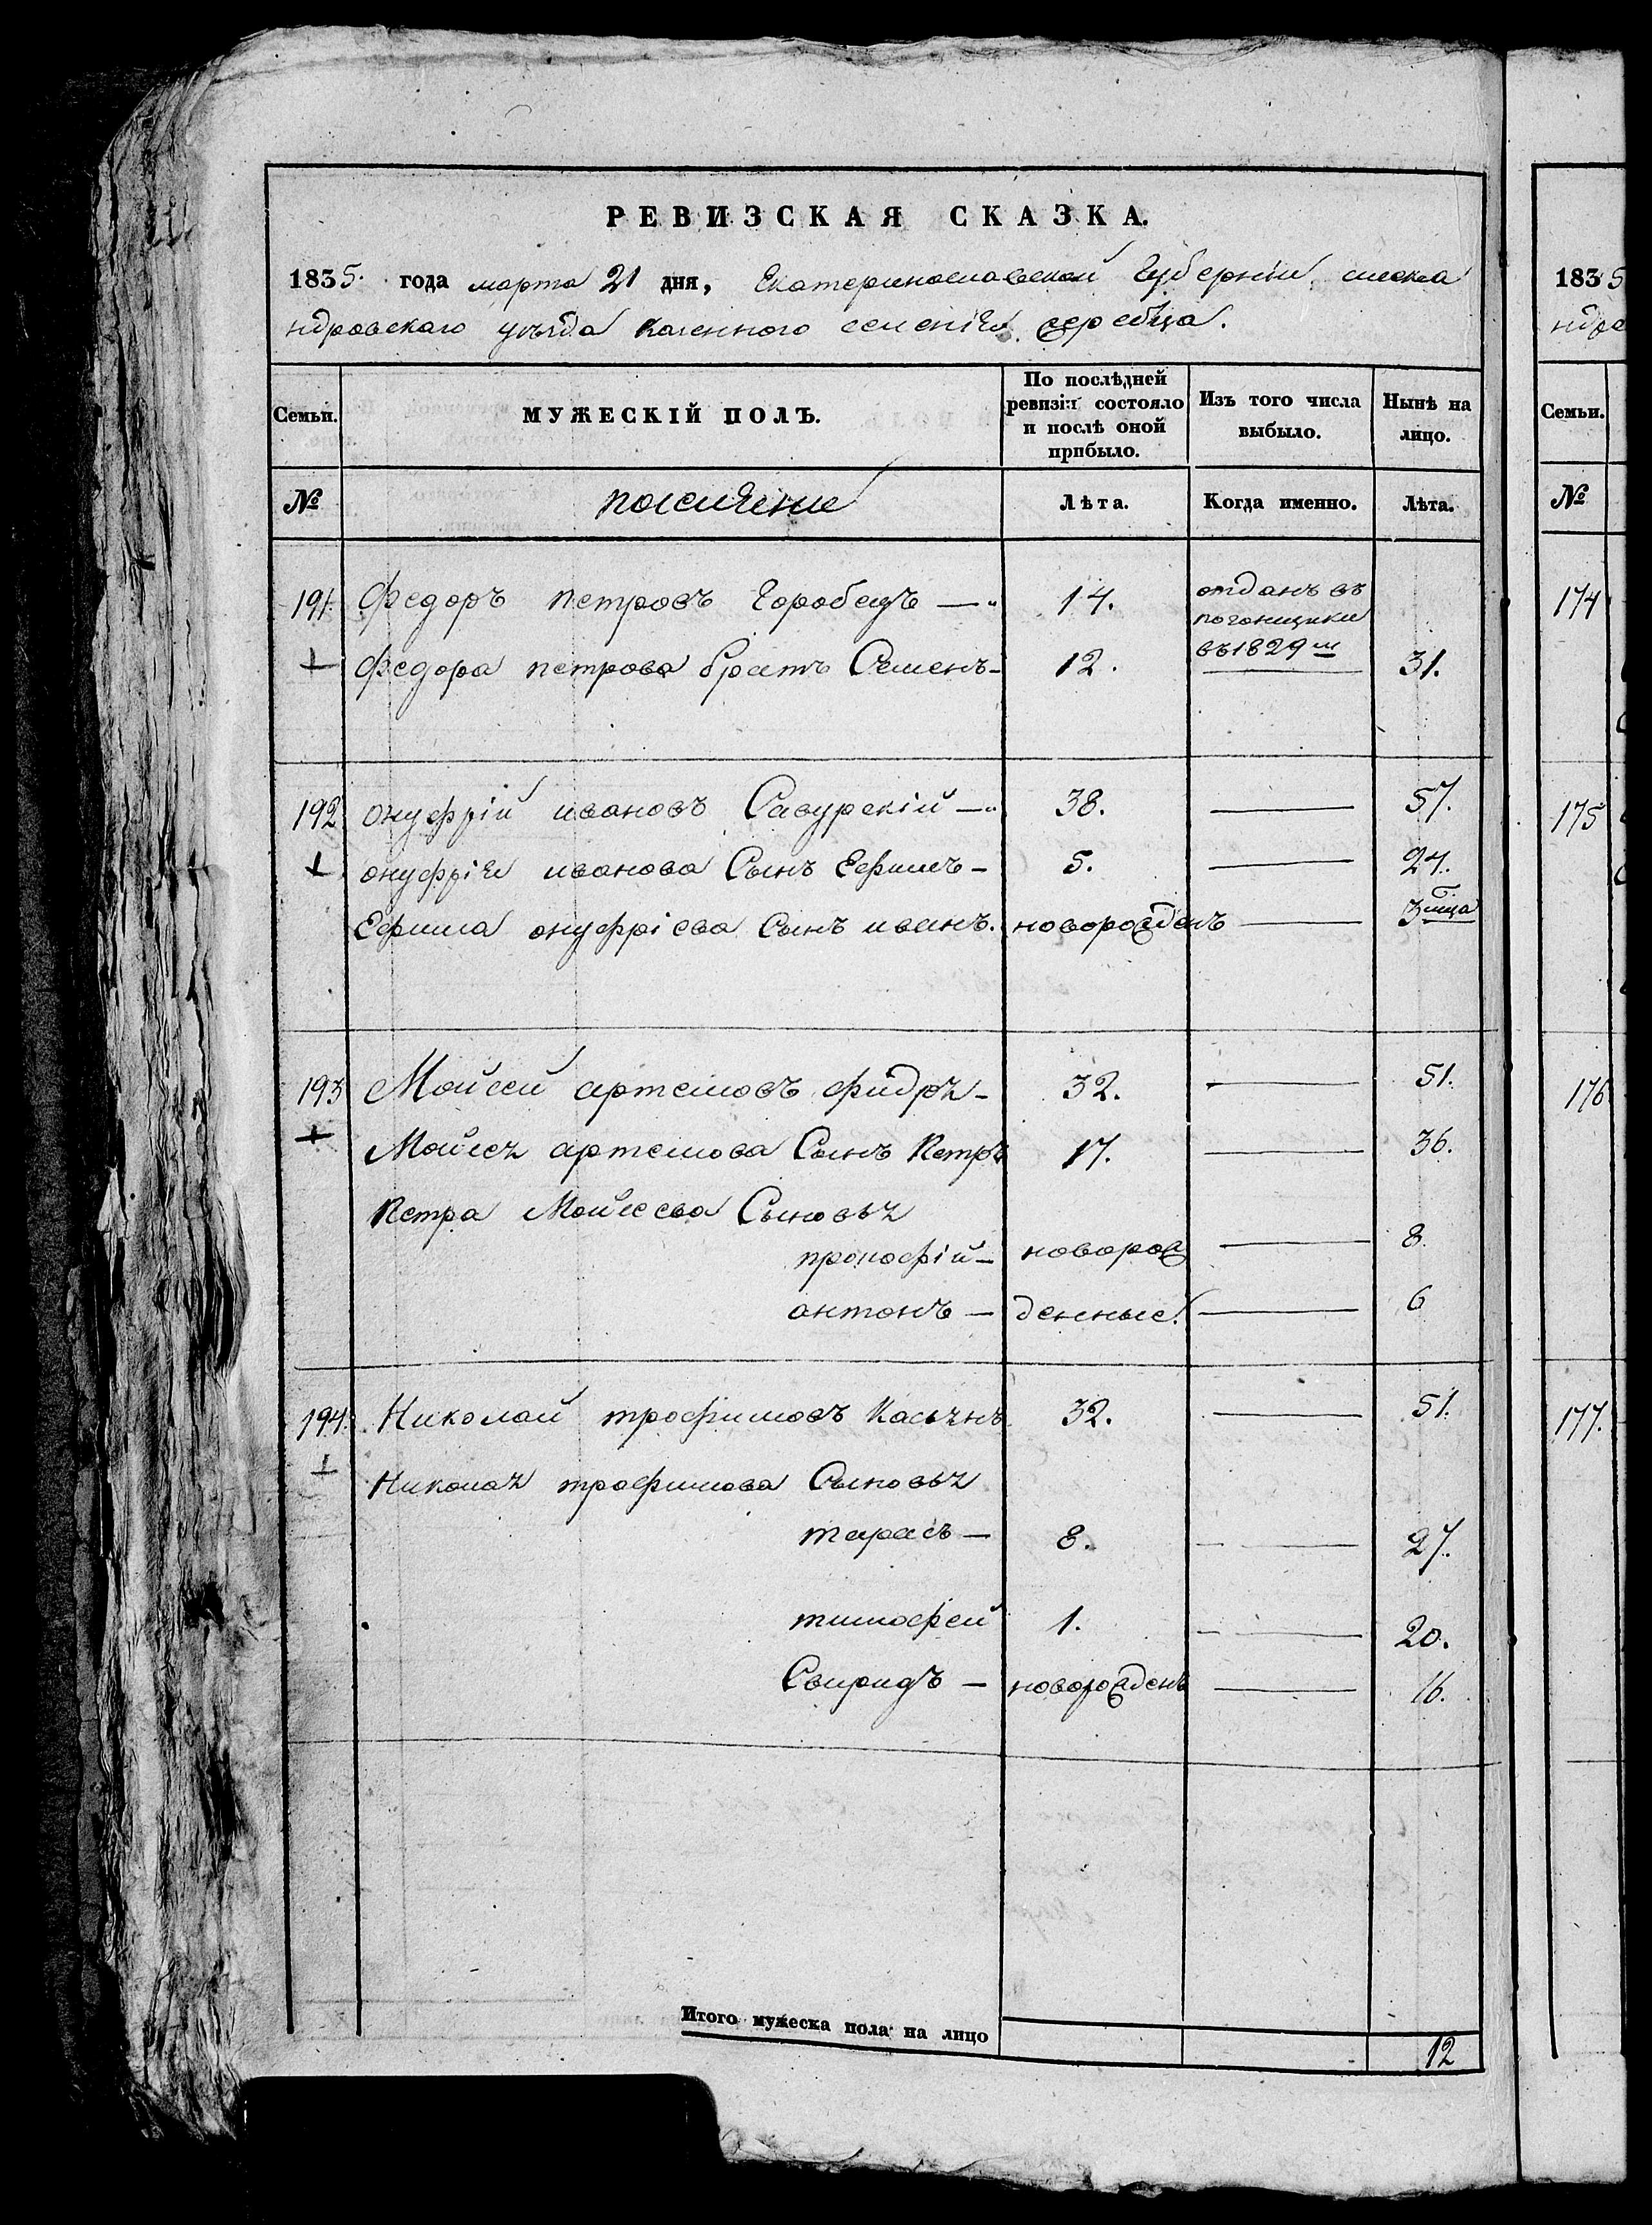 РЕВИЗСКАЯ СКАЗКА.
1835. года марта 21 дня, Екатеринославской Губерніи, алекса
ндровскаго уѣзда казенного селенія
Семьи. МУЖЕСКІЙ ПОЛЪ. По послѣдней ревизіи состояло и послѣ оной прибыло. Изъ того числа выбыло. Нынѣ на лицо.
№ поселяне Лѣта. Когда именно. Лѣта.
191. Федоръ петровъ Горобецъ — 14. отданъ въ погонщики въ 1829 м
+ Федора петрова братъ Семенъ - 12. — 31.
192 онуфрій ивановъ Савурскій — 38. — 57.
+ онуфрія иванова Сынъ Ефимъ - 5. — 24.
Ефима онуфріева Сынъ иванъ. новорожденъ — 3 мца
193 Мойсей артемовъ фидря - 32. — 51.
+ Мойсея артемова Сынъ Петръ 17. — 36.
Петра Мойсеева Сыновья
прокофій - новорож — 8.
антонъ - денные. — 6
194. Николай трофимовъ Касянъ 32. — 51.
+ Николая трофимова Сыновья
тарасъ - 8. — 27.
тимофей 1. — 20.
Свиридъ - новорожденъ — 16.
Итого мужеска пола на лицо 12
183 5
ндро
Семьи.
№
174
175
176
177.